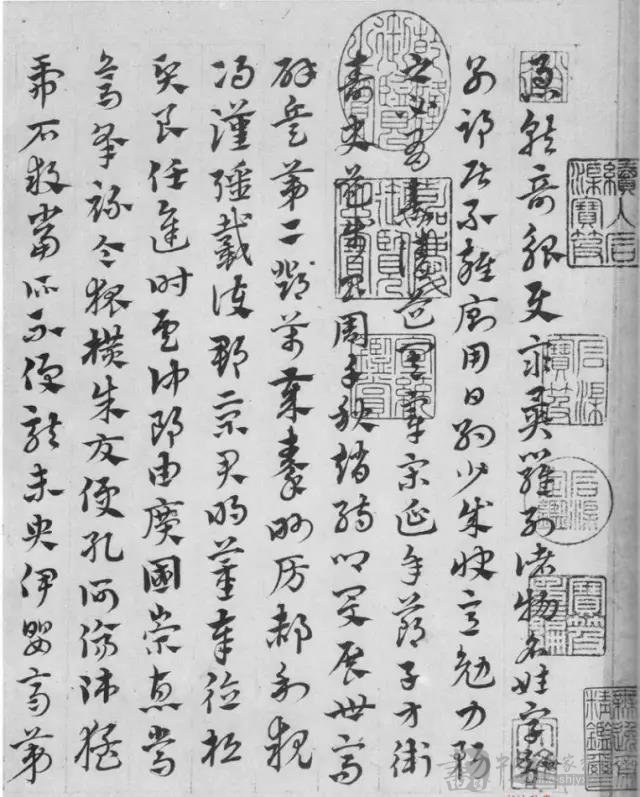 急就奇觚與衆異羅列諸物名姓字
分別部居不雜廁用日約少誠快意勉力務
之必有憙請道其章宋延年鄭子方衛
壽史步昌周千秋趙孺卿爰展世高
辟兵第二鄧萬歲秦眇房郝利親
馮漢彊戴護郡景君明董奉德桓
賢良任逢時侯仲郎由廣國榮惠常
烏承祿令狐橫朱交便孔何傷師猛
虎石敢當所不侵龍未央伊嬰齊第
石渠寶笈
嘉慶御覽之寶